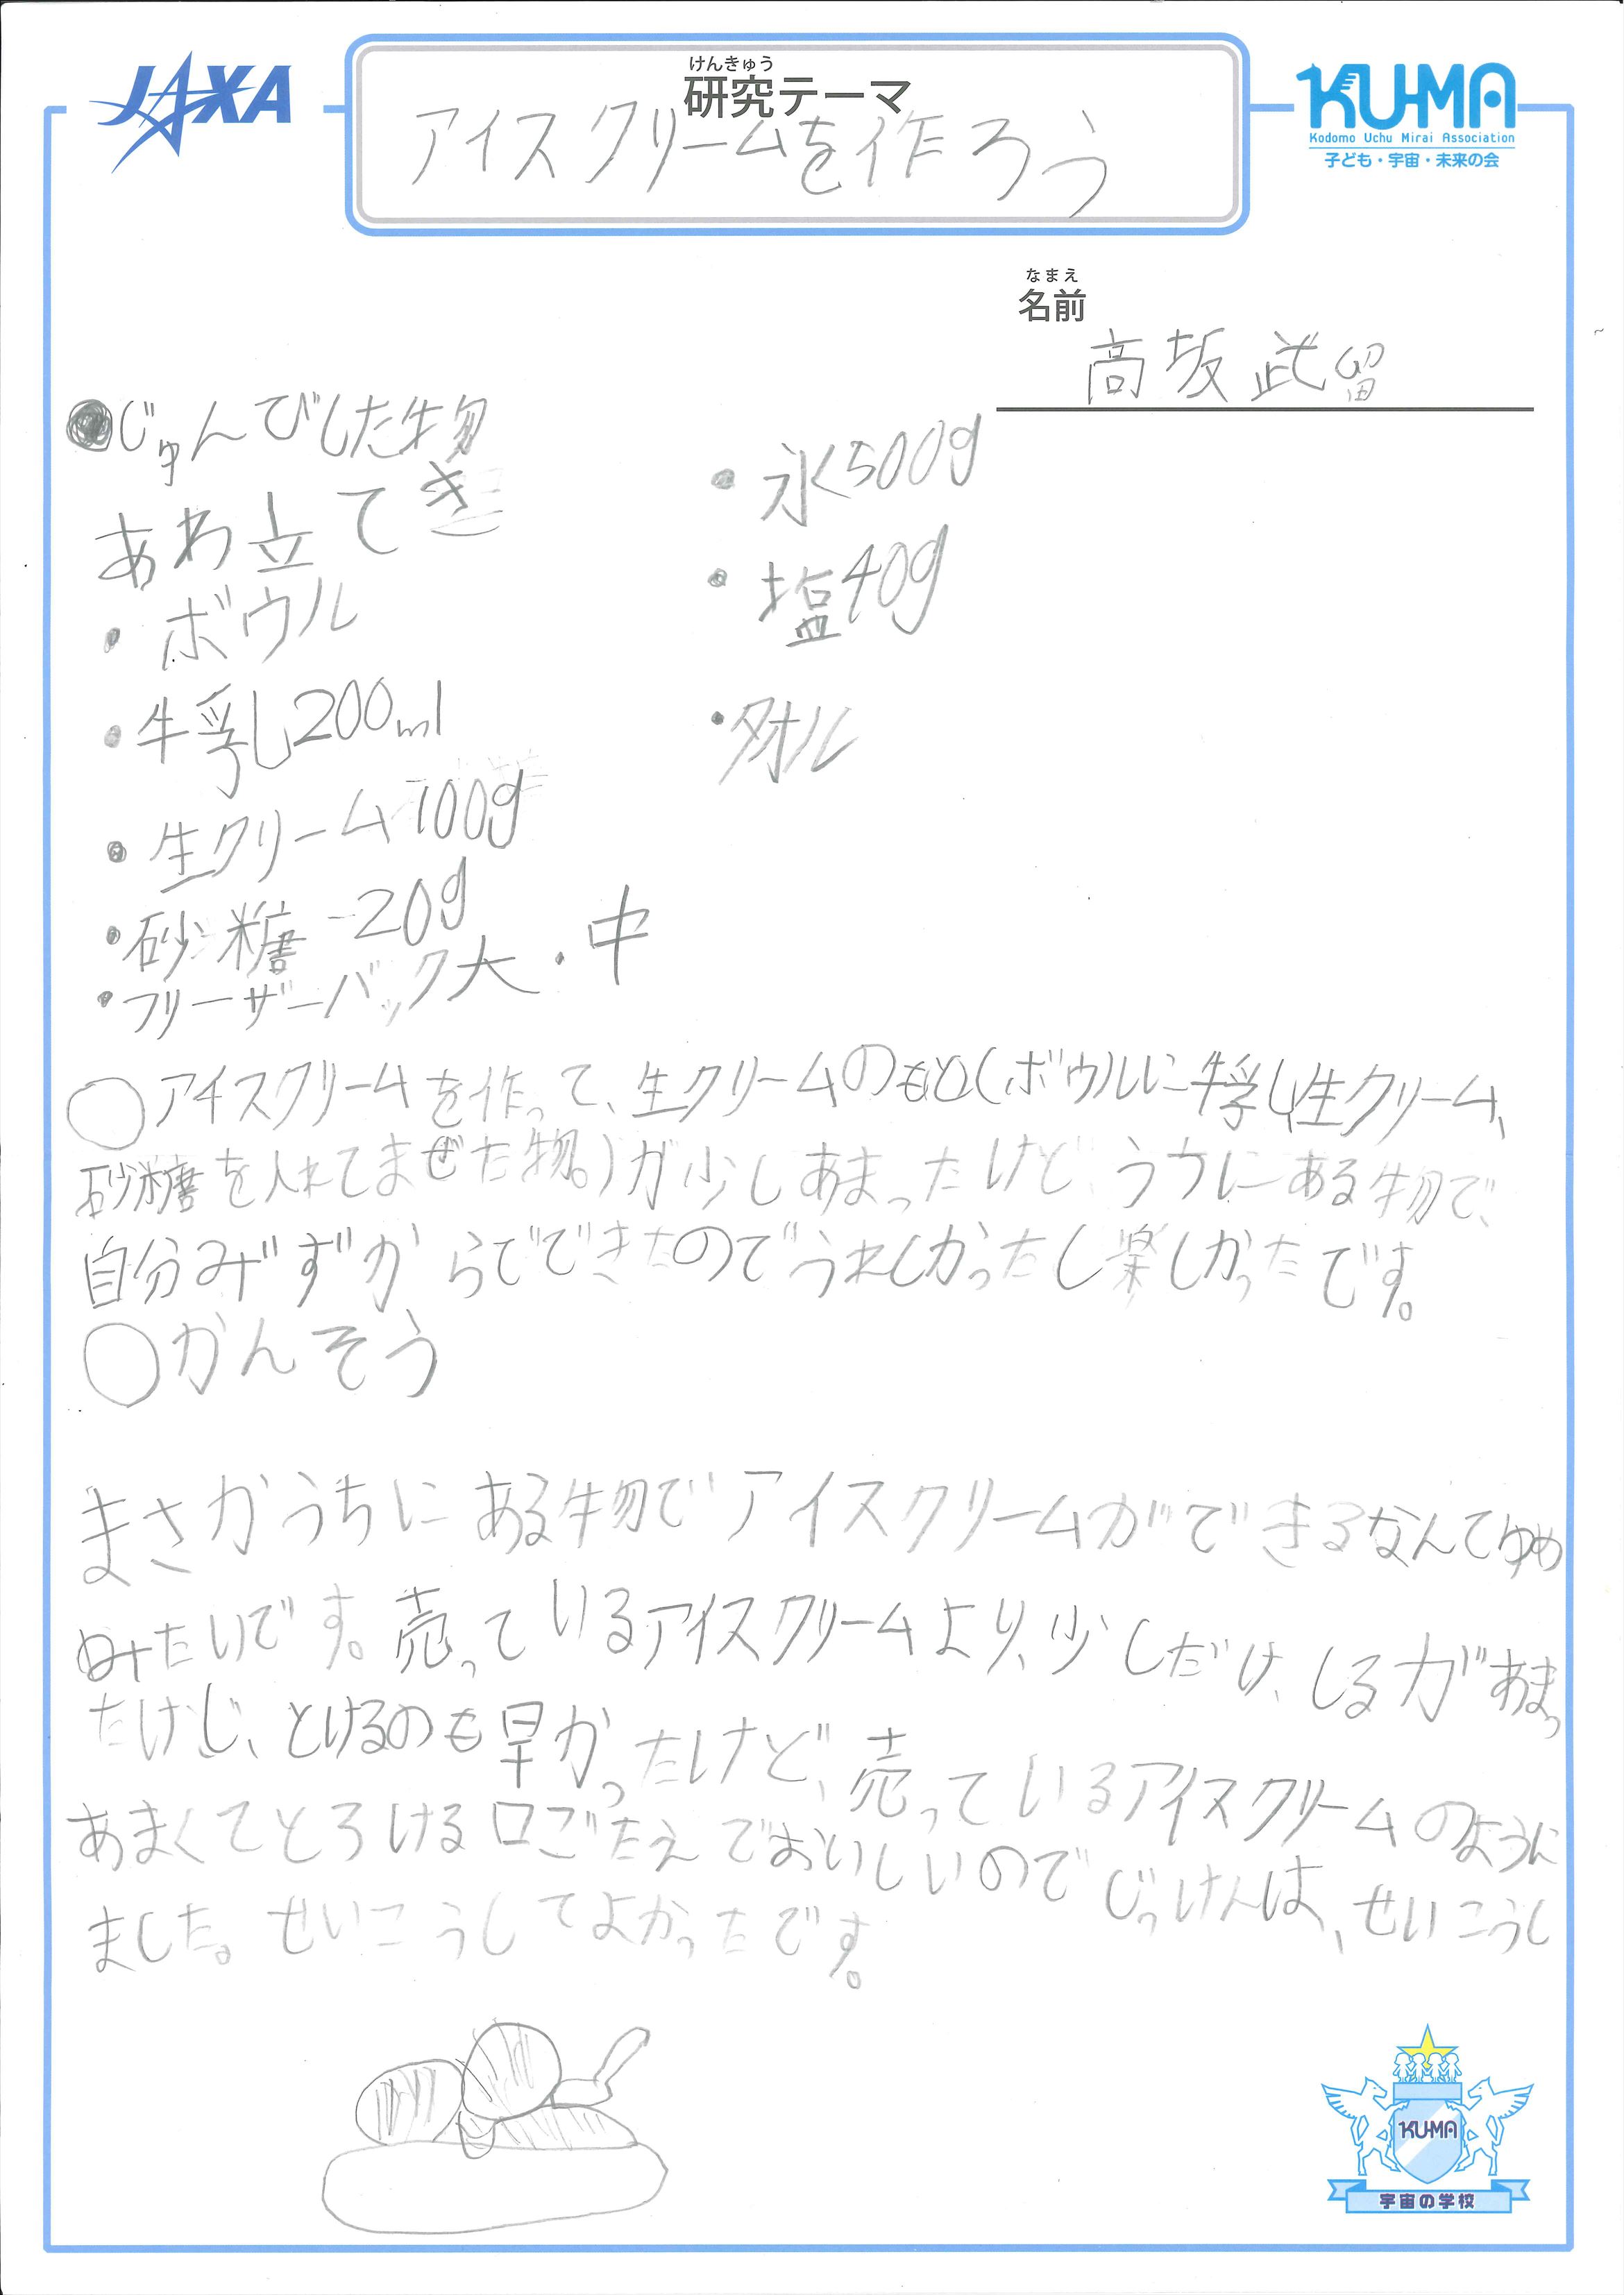 JAXA
けんきゅう
研究テーマ
アイスクリームを作ろう
KU-MA
Kodomo Uchu Mirai Association
子ども・宇宙・未来の会
なまえ
名前
高坂武留
●じゅんびした物
あわ立てき
・ボウル
・牛乳し200ml
・生クリーム100g
・砂糖-20g
・フリーザーバック大・中
・氷500g
・塩40g
・タオル
○アイスクリームを作って、生クリームのもと(ボウルに牛乳し生クリーム、
砂糖を入れてまぜた物。)が少しあまったけど、うちにある物で、
自分みずからでできたのでうれしかったし楽しかったです。
○かんそう
まさかうちにある物でアイスクリームができるなんてゆめ
みたいです。売っているアイスクリームより、少しだけ、しるがあまっ
たけど、とけるのも早かったけど、売っているアイスクリームのように
あまくてとろける口ごたえでおいしいのでじっけんは、せいこうし
ました。せいこうしてよかったです。
KU-MA
宇宙の学校